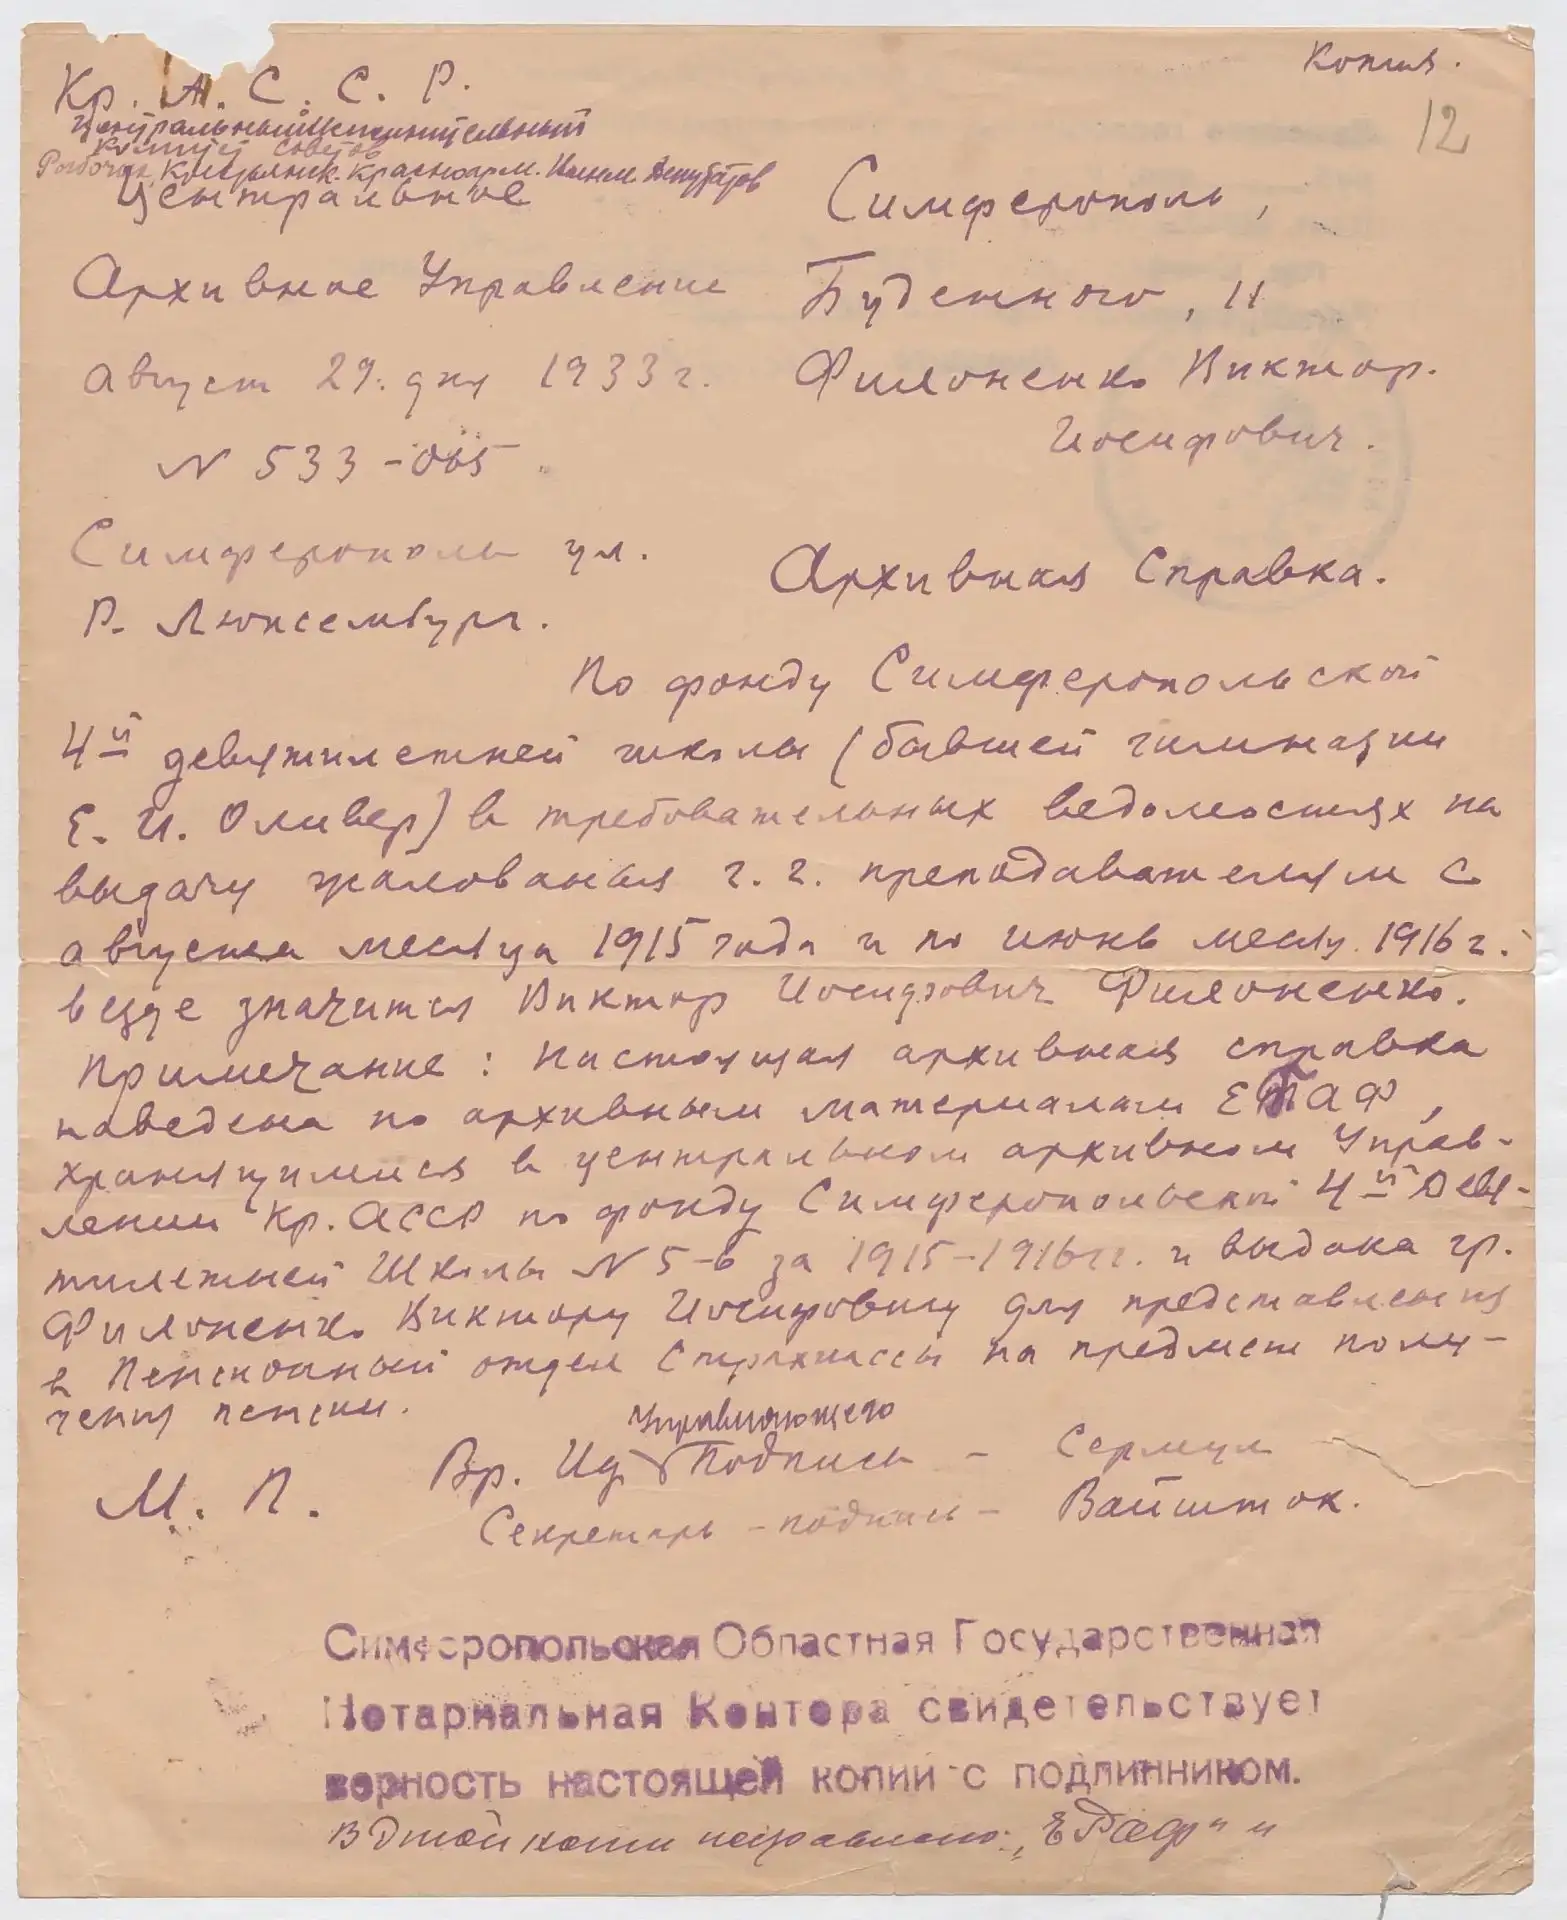 Копия.
12
Кр. А. С. С. Р.
Центральный Исполнительный
Комитет Советов
Рабочих, Крестьянск. Красноарм. Депутатов
Центральное
Архивное Управление
Август 29. дня 1933 г.
N 533-
Симферополь ул.
Р. Люксембург.
Симферополь,
Буденного, 11
Филоненко Виктор.
Иосифович.
Архивная Справка.
По фонду Симферопольской
4й девятилетней школы (бывшей гимназии
Е. И. Оливер) в требовательных ведомостях на
выдачу жалования г. г. преподавателям с
августа месяца 1915 года и по июнь месяц 1916 г.
везде значится Виктор Иосифович Филоненко.
Примечание: Настоящая архивная справка
наведена по архивным материалам ЕГАФ,
хранящимися в центральном архивном Управ-
лении Кр. АССР по фонду Симферопольской 4й Девя-
тилетней Школы N 5-6 за 1915-1916 гг. и выдана гр.
Филоненко Виктору Иосифовичу для представления
в Пенсионный отдел Страхкассы на предмет полу-
чения пенсии.
Управляющего
Вр. Ид Подпись -
М. П.
Секретарь - подпись - Вайшток.
Симферопольская Областная Государственная
Нотариальная Контора свидетельствует
верность настоящей копии с подлинником.
В этой копии исправлено: „ и